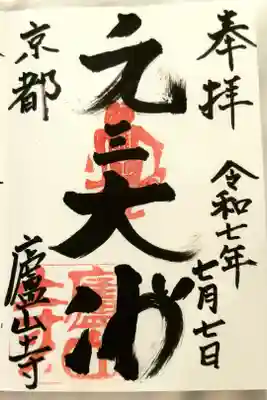 奉拝
令和七年
七月七日
元三大師
京都
廬山寺